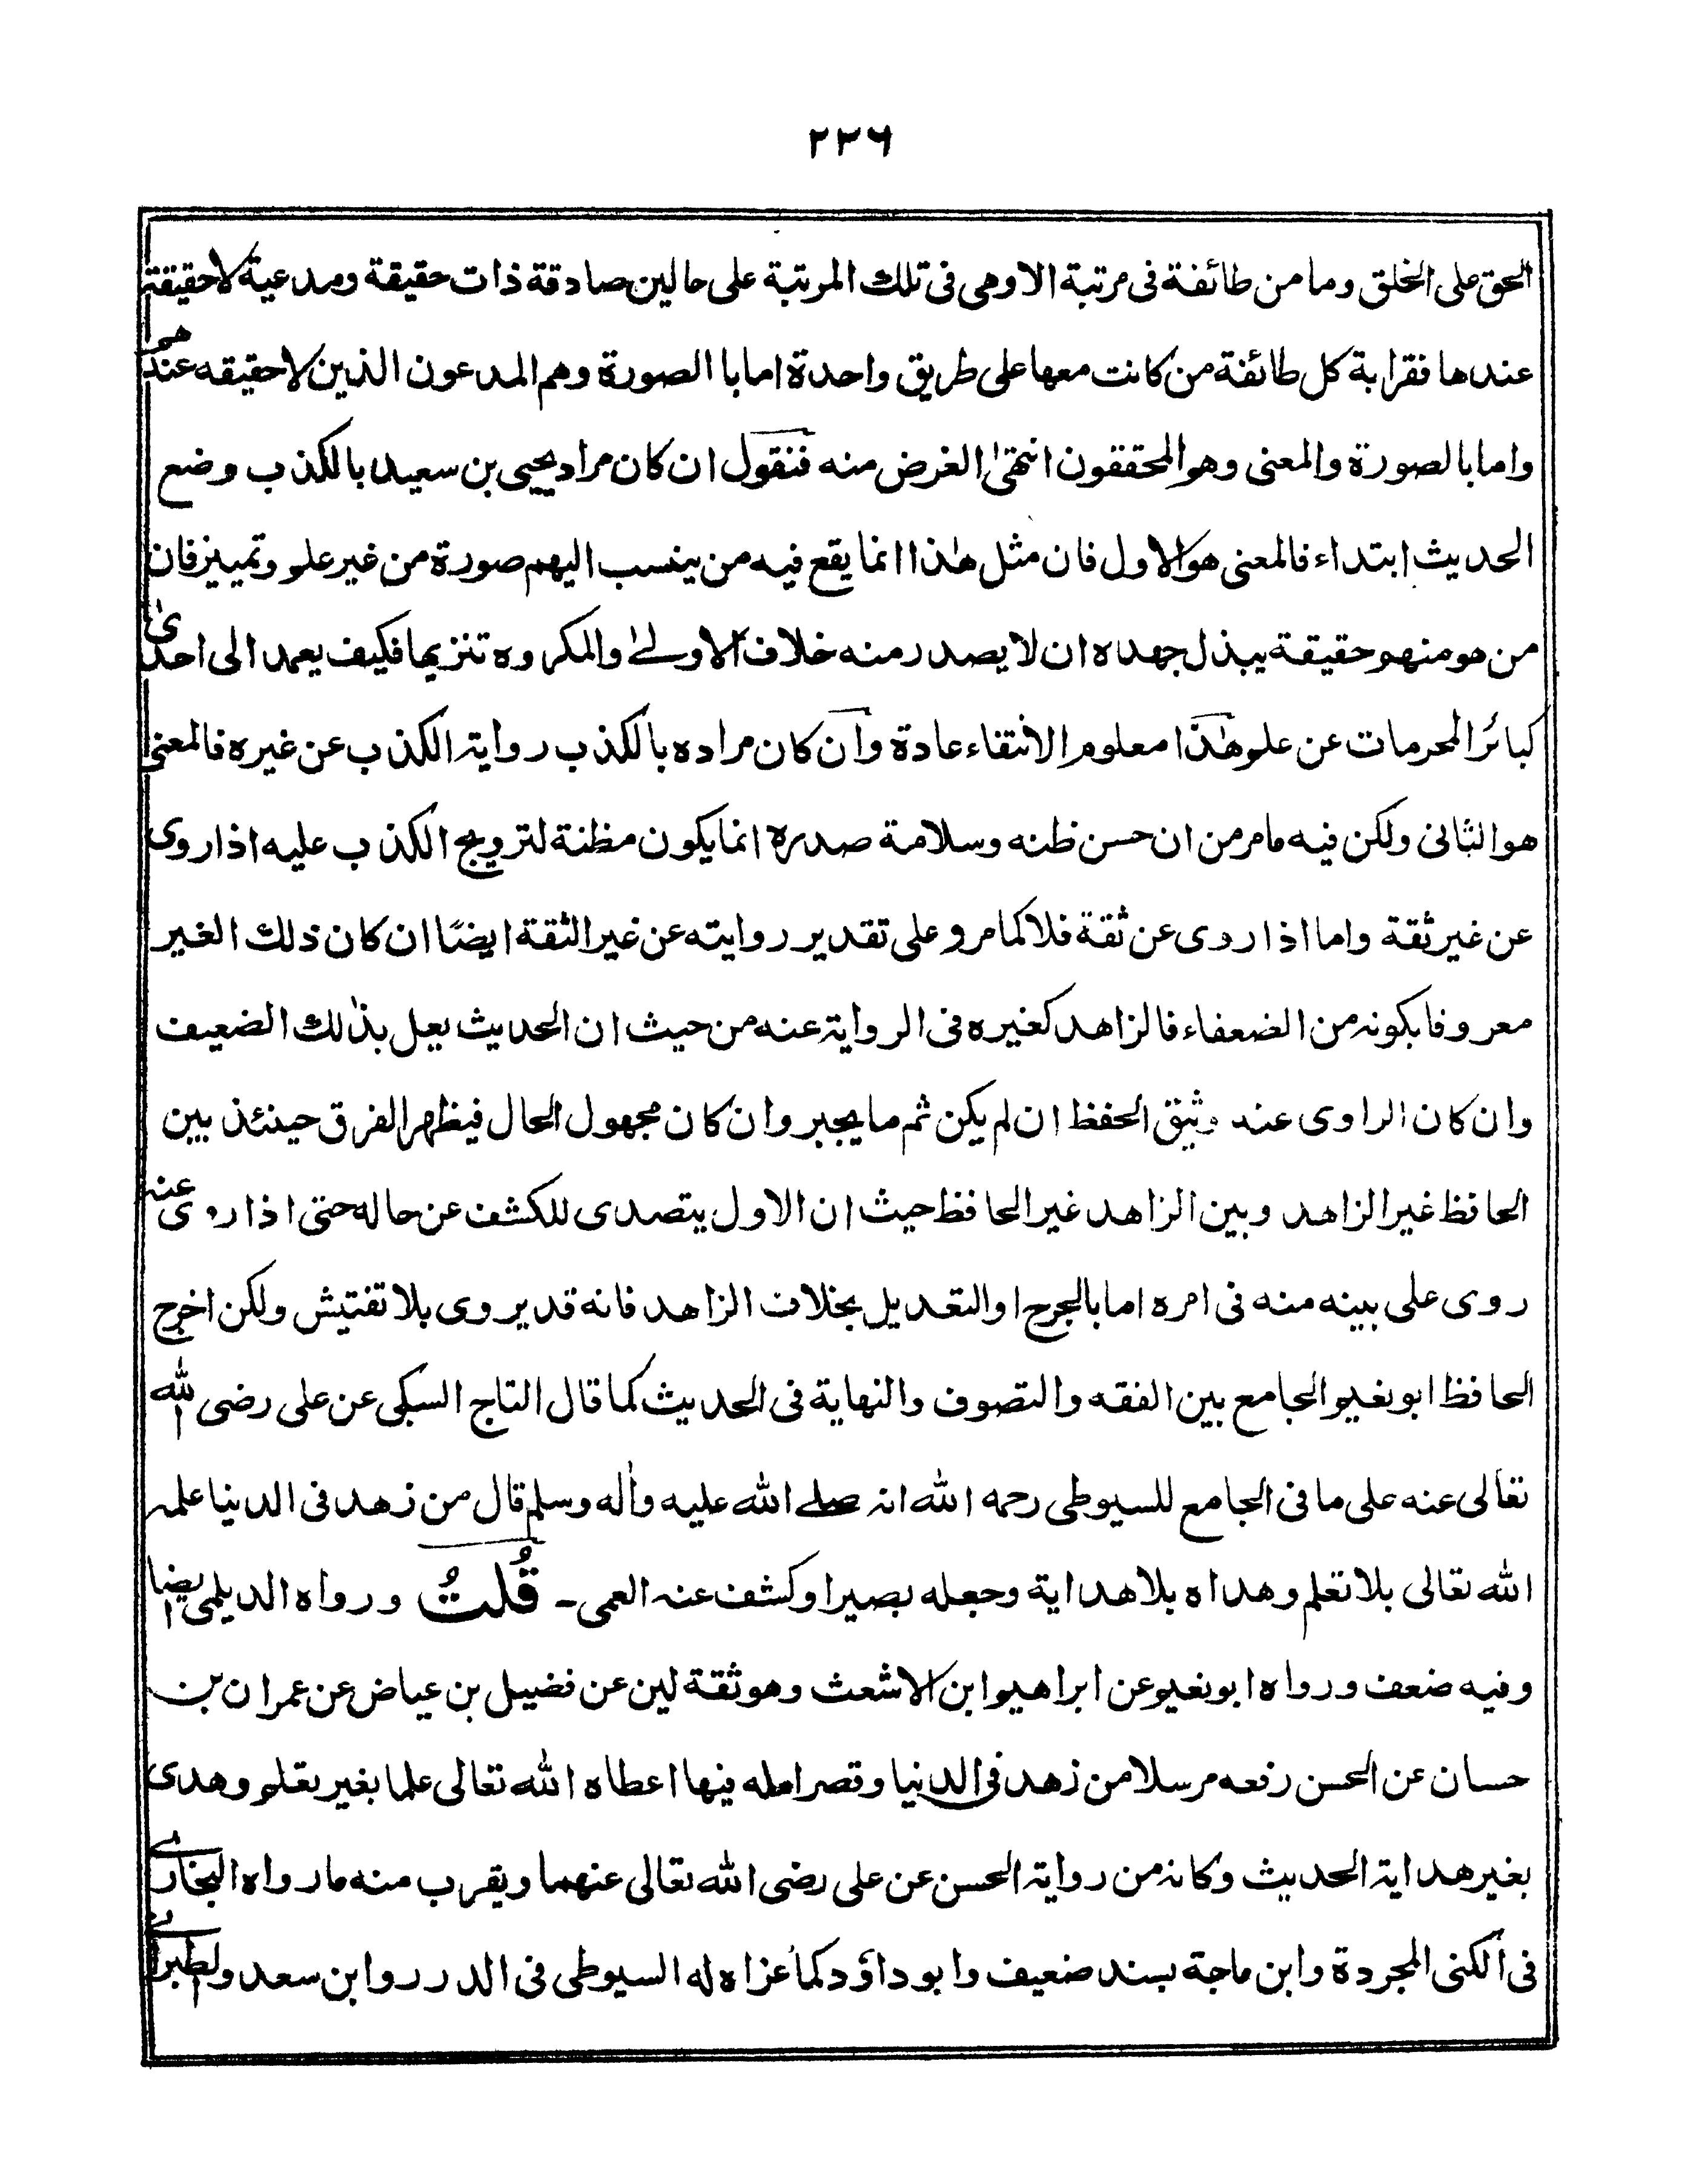 ٢٣٦
الحق على الخلق وما من طائفة فى مرتبة الا وهى فى تلك المرتبة على حالين صادقة ذات حقيقة ومدعية لا حقيقة
عندها فقرابة كل طائفة من كانت معها على طريق واحدة اما با الصورة وهم المدعون الذين لا حقيقه عندهم
واما بالصورة والمعنى وهو المحققون انتهىٰ الغرض منه فنقول ان كان مراد يحيى بن سعيد بالكذب وضع
الحديث ابتداء فالمعنى هو الاول فان مثل هٰذا انما يقع فيه من ينسب اليهم صورة من غير علم وتمييز فان
من هو منهم حقيقة يبذل جهده ان لا يصدر منه خلاف الاولىٰ والمكروه تنزيها فكيف يعمد الى احدىٰ
كبائر المحرمات عن علم هٰذا معلوم الانتقاء عادة وان كان مراده بالكذب رواية الكذب عن غيره فالمعنى
هو الثانى ولكن فيه مامر من ان حسن ظنه وسلامة صدره انما يكون مظنة لترويج الكذب عليه اذا روى
عن غير ثقة واما اذا روى عن ثقة فلا كما مر و على تقدير روايته عن غير الثقة ايضًا ان كان ذلك الغير
معروفا بكونه من الضعفاء فالزاهد كغيره فى الرواية عنه من حيث ان الحديث يعل بذٰلك الضعيف
وان كان الراوى عنه وثيق الحفظ ان لم يكن ثم ما يجبر وان كان مجهول الحال فيظهر الفرق حينئذ بين
الحافظ غير الزاهد وبين الزاهد غير الحافظ حيث ان الاول يتصدى للكشف عن حاله حتى اذا روى عنه
روى على بينه منه فى امره اما بالجرح او التعديل بخلاف الزاهد فانه قد يروى بلا تفتيش ولكن اخرج
الحافظ ابو نعيم الجامع بين الفقه والتصوف والنهاية فى الحديث كما قال التاج السبكى عن على رضى الله
تعالى عنه على ما فى الجامع للسيوطى رحمه الله انه صلے الله عليه واٰله وسلم قال من زهد فى الدنيا علمه
الله تعالى بلا تعلم وهداه بلا هداية وجعله بصيرا وكشف عنه العمى ـ قُلتُ ورواه الديلمى ايضا
وفيه ضعف ورواه ابو نعيم عن ابراهيم ابن الاشعث وهو ثقة لين عن فضيل بن عياض عن عمران بن
حسان عن الحسن رفعه مرسلا من زهد فى الدنيا وقصر امله فيها اعطاه الله تعالى علما بغير تعلم وهدى
بغير هداية الحديث وكانه من رواية الحسن عن على رضى الله تعالى عنهما ويقرب منه ما رواه البخارے
فى الكنى المجردة وابن ماجة بسند ضعيف وابو داؤد كما عزاه له السيوطى فى الدرر وابن سعد والطبرانے